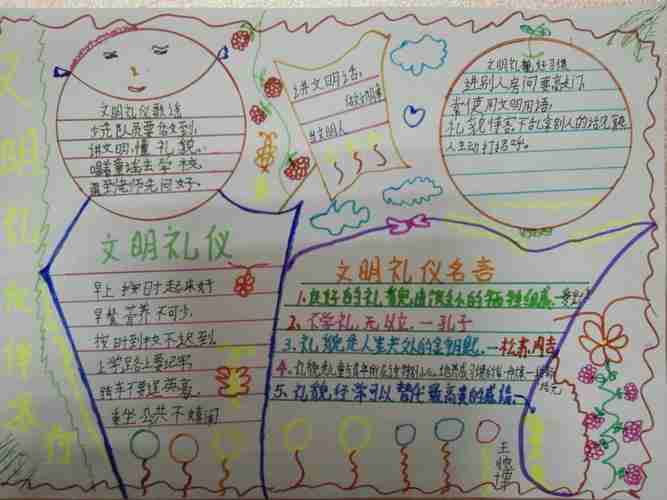 文明礼仪伴我行
文明礼仪歌谣
少先队员要做到,
讲文明,懂礼貌。
唱着童谣去学校,
遇到老师先问好。
讲文明话,
做文明事
当文明人
文明礼貌好习惯
进别人房间要敲门
常使用文明用语。
礼貌待客不乱拿别人的
人主动打招呼。
文明礼仪
早上按时起床好
早餐营养不可少,
按时到校不迟到
上学路上要记牢
骑车不要逞英豪,
乘坐公共不嬉闹
文明礼仪名言
1、良好的礼貌由微小的牺牲组成。
2、不学礼,无以立。—孔子
3、礼貌是人类共处的金钥匙。—松苏内吉
4、礼貌
5、礼貌经常可以替代最高贵的感情。
王